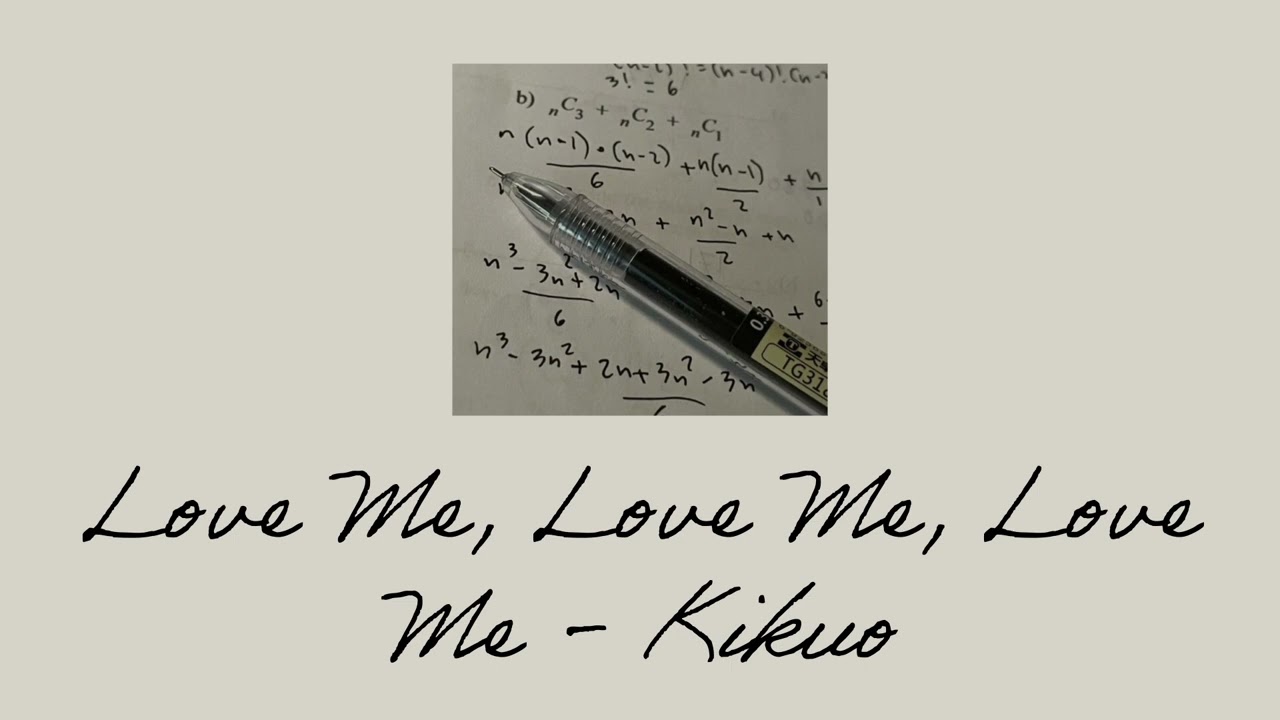 3! = 6
b) nC3 + nC2 + nC1
n(n-1)•(n-2) + n(n-1) + n
6 2 1
+ n²-n + n
2
n³ - 3n² + 2n
6
n³ - 3n² + 2n + 3n² - 3n
0.3
TG31
Love Me, Love Me, Love
Me - Kikuo